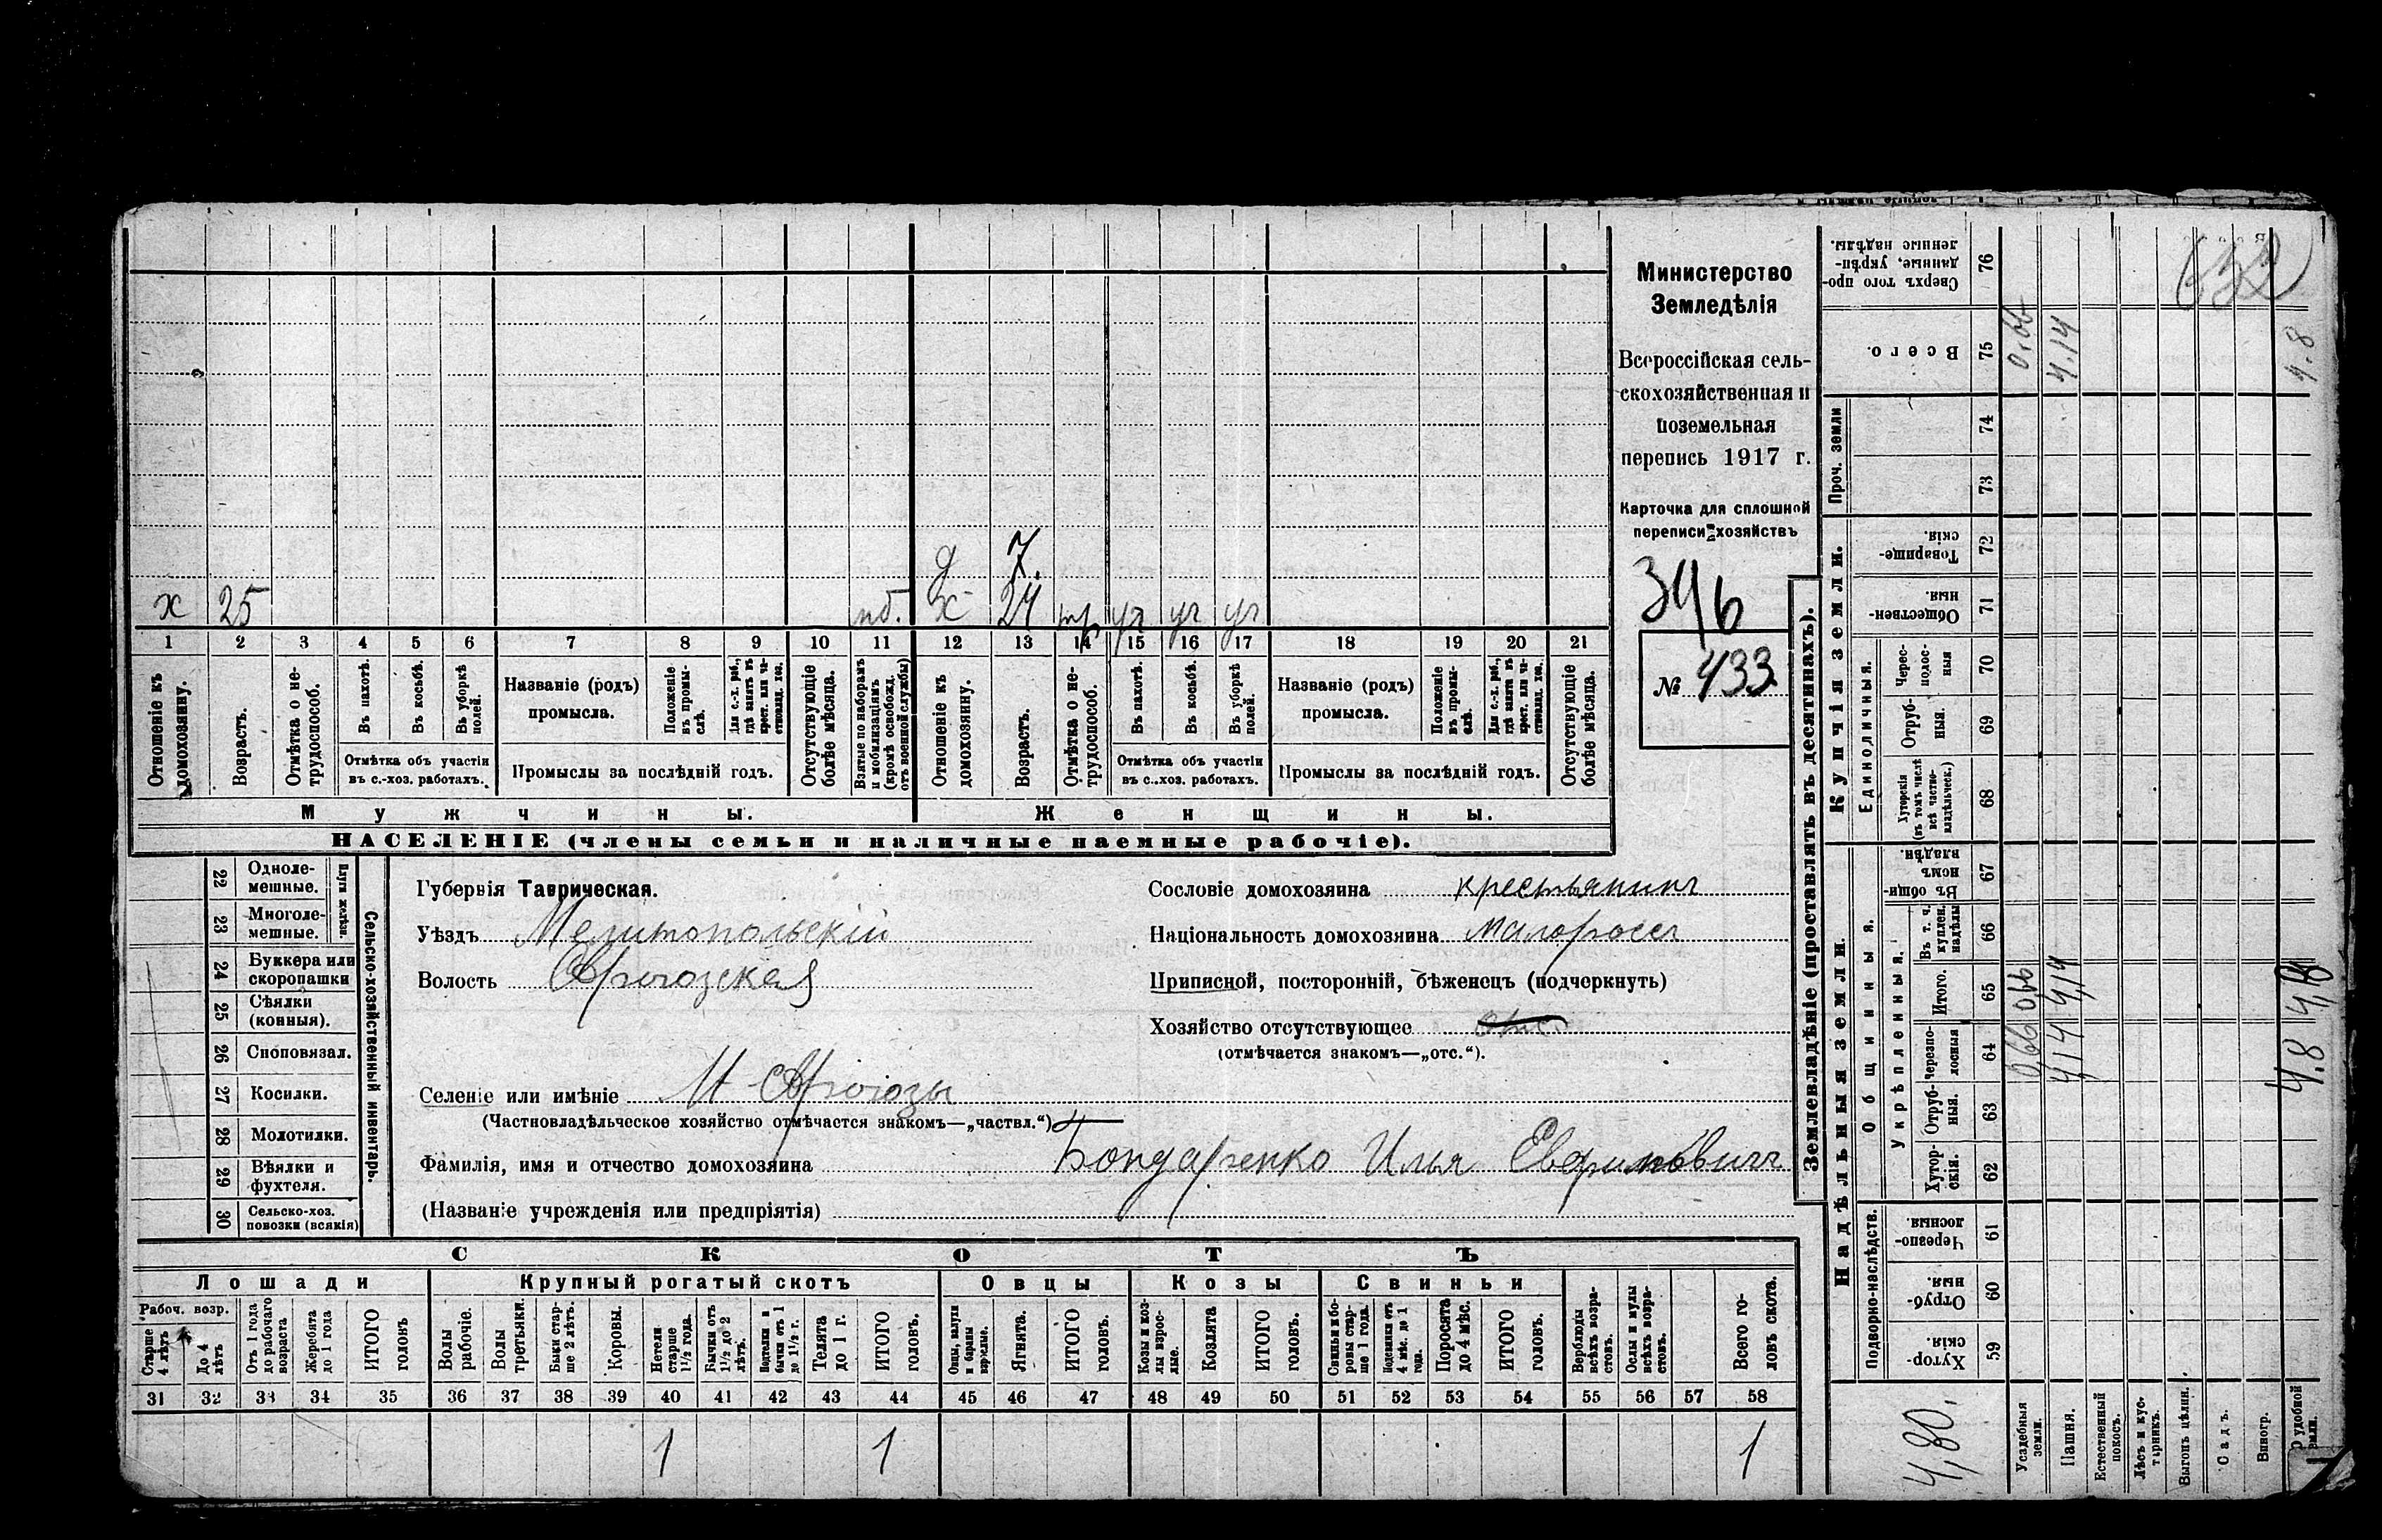 х 25 пб. д 7.
х 24 тр уч уч уч
1 2 3 4 5 6 7 8 9 10 11 12 13 14 15 16 17 18 19 20 21
Отношеніе къ домохозяину.
Возрастъ.
Отмѣтка о нетрудоспособ.
Въ пахотѣ.
Въ косьбѣ.
Въ уборкѣ полей.
Отмѣтка объ участіи
въ с.-хоз. работахъ.
Названіе (родъ)
промысла.
Положеніе въ промыслѣ.
Для с.-х. раб., гдѣ занятъ въ крест. или частновлад. хоз.
Промыслы за послѣдній годъ.
Отсутствующіе болѣе мѣсяца.
Взятые по наборамъ и мобилизаціямъ (кромѣ освобожд. отъ военной службы)
Отношеніе къ домохозяину.
Возрастъ.
Отмѣтка о нетрудоспособ.
Въ пахотѣ.
Въ косьбѣ.
Въ уборкѣ полей.
Отмѣтка объ участіи
въ с.-хоз. работахъ.
Названіе (родъ)
промысла.
Положеніе въ промыслѣ.
Для с.-х. раб., гдѣ занята въ крест. или частновлад. хоз.
Промыслы за послѣдній годъ.
Отсутствующіе болѣе мѣсяца.
Мужчины.
Женщины.
НАСЕЛЕНІЕ (члены семьи и наличные наемные рабочіе).
Министерство
Земледѣлія
Всероссійская сель-
скохозяйственная и
поземельная
перепись 1917 г.
Карточка для сплошной
переписи хозяйствъ
346
№ 433
22 Одноле-
мешные.
23 Многоле-
мешные.
Плуги желѣзн.
24 Буккера или
скоропашки
25 Сѣялки
(конныя).
26 Сноповязал.
27 Косилки.
28 Молотилки.
29 Вѣялки и
фухтеля.
30 Сельско-хоз.
повозки (всякія)
Сельско-хозяйственный инвентарь.
Губернія Таврическая.
Уѣздъ Мелитопольскій
Волость
Селеніе или имѣніе
(Частновладѣльческое хозяйство отмѣчается знакомъ—„частвл.“)
Фамилія, имя и отчество домохозяина Бондаренко Илья
(Названіе учрежденія или предпріятія)
Сословіе домохозяина крестьянинъ
Національность домохозяина малороссъ
Приписной, посторонній, бѣженецъ (подчеркнуть)
Хозяйство отсутствующее отс.
(отмѣчается знакомъ—„отс.“).
СКОТЪ
Лошади
Рабоч. возр.
Старше 4 лѣтъ
До 4 лѣтъ
Отъ 1 года до рабочаго возраста
Жеребята до 1 года
ИТОГО головъ
Крупный рогатый скотъ
Волы рабочіе.
Волы третьяки.
Быки старше 2 лѣтъ.
Коровы.
Нетели старше 1½ года.
Бычки отъ 1½ до 2 лѣтъ.
Подтелки и бычки отъ 1 до 1½ г.
Телята до 1 г.
ИТОГО головъ.
Овцы
Овцы, валухи и бараны взрослые.
Ягнята.
ИТОГО головъ.
Козы
Козы и козлы взрослые.
Козлята
ИТОГО головъ.
Свиньи
Свиньи и боровы старше 1 года.
Подсвинки отъ 4 мѣс. до 1 года.
Поросята до 4 мѣс.
ИТОГО головъ.
Верблюды всѣхъ возрастовъ.
Ослы и мулы всѣхъ возрастовъ.
Всего головъ скота.
31 32 33 34 35 36 37 38 39 40 41 42 43 44 45 46 47 48 49 50 51 52 53 54 55 56 57 58
1 1 1
Землевладѣніе (проставлять въ десятинахъ).
Надѣльныя земли.
Купчія земли.
Проч. земли
Сверхъ того проданные, укрѣпленные надѣлы. 76
Всего. 75
74
73
Товарищескія. 72
Общественныя. 71
Единоличныя.
Чересполосныя 70
Отрубныя. 69
Хуторскія (въ томъ числѣ всѣ частновладѣльческ.) 68
Общинныя.
Въ общинномъ владѣн. 67
Укрѣпленныя.
Въ т. ч. куплен. надѣлы 66
Итого. 65
Черезполосныя 64
Отрубныя. 63
Хуторскія. 62
Подворно-наслѣдств.
Черезполосныя. 61
Отрубныя. 60
Хуторскія. 59
Усадебныя земли.
Пашня.
Естественный покосъ.
Лѣсъ и кустарникъ.
Выгонъ цѣлин.
Садъ.
Виногр.
удобной земли.
0,66
4.14
4.8
0,66 0,66
4,14 4,14
4.8 4,8
4,80.
632